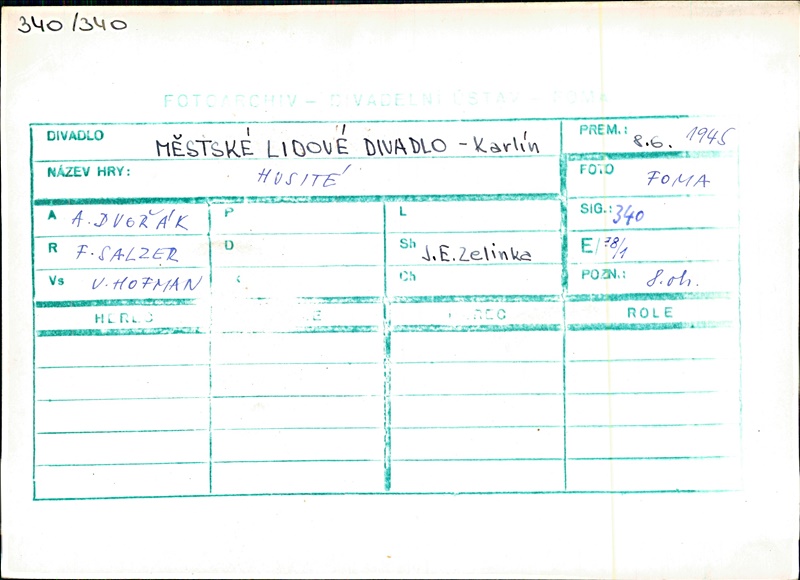 340/340
FOTOARCHIV – DIVADELNÍ ÚSTAV
DIVADLO MĚSTSKÉ LIDOVÉ DIVADLO – Karlín PREM.: 8.6. 1945
NÁZEV HRY: HUSITÉ FOTO FOMA
A A. DVOŘÁK P L SIG.: 340
R F. SALZER D Sh J.E.Zelinka E/78/1
Vs V. HOFMAN Ch POZN.: 8.oh.
HEREC ROLE HEREC ROLE